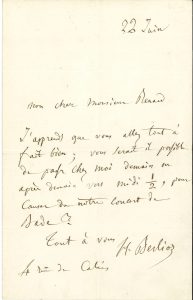 22 Juin
mon cher monsieur Renard
J'apprends que vous allez tout à
fait bien; vous serait il possible
de passer chez moi demain ou
après demain vers midi 1/2, pour
Causer de notre concert de
Bade?
Tout à vous
H. Berlioz
4 rue de Calais